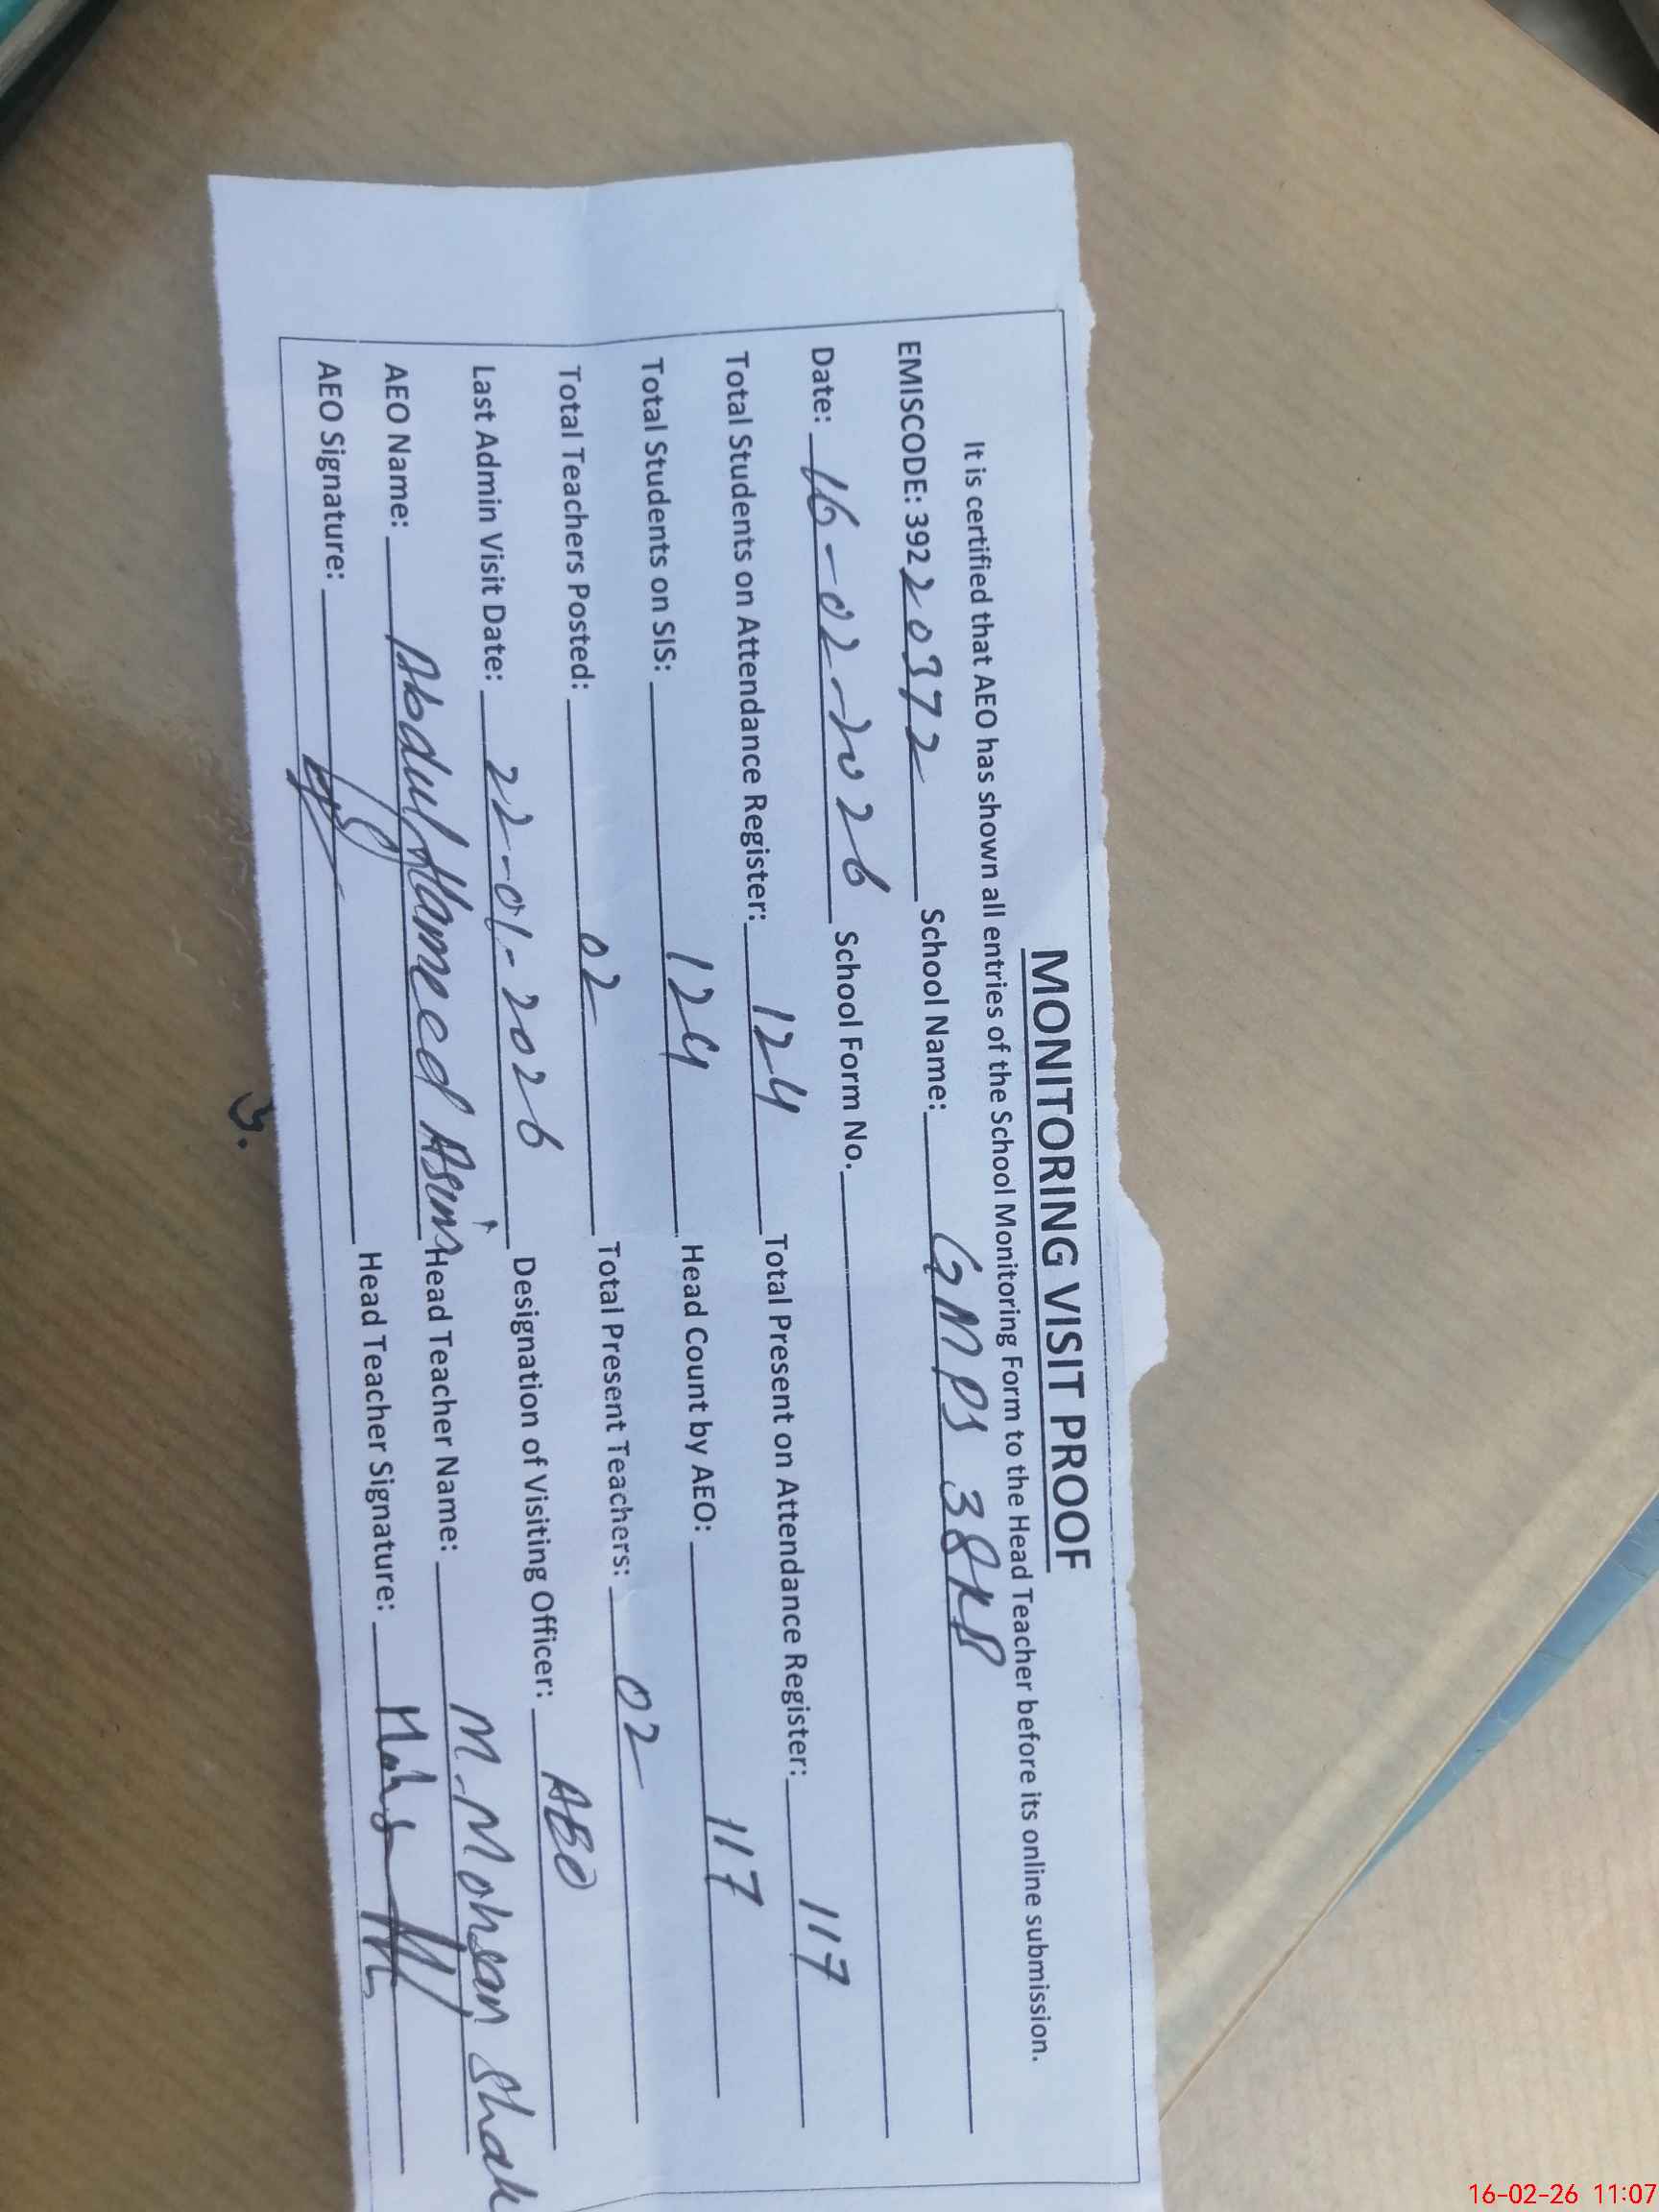 MONITORING VISIT PROOF
It is certified that AEO has shown all entries of the School Monitoring Form to the Head Teacher before its online submission.
EMISCODE: 39220372 School Name: GMPS 38KB
Date: 16-02-2026 School Form No.
Total Students on Attendance Register: 124 Total Present on Attendance Register: 117
Total Students on SIS: 124 Head Count by AEO: 117
Total Teachers Posted: 02 Total Present Teachers: 02
Last Admin Visit Date: 22-01-2026 Designation of Visiting Officer: AEO
AEO Name: Abdul Hameed Asim Head Teacher Name: M. Mohsan Shah
AEO Signature: Head Teacher Signature:
16-02-26 11:07